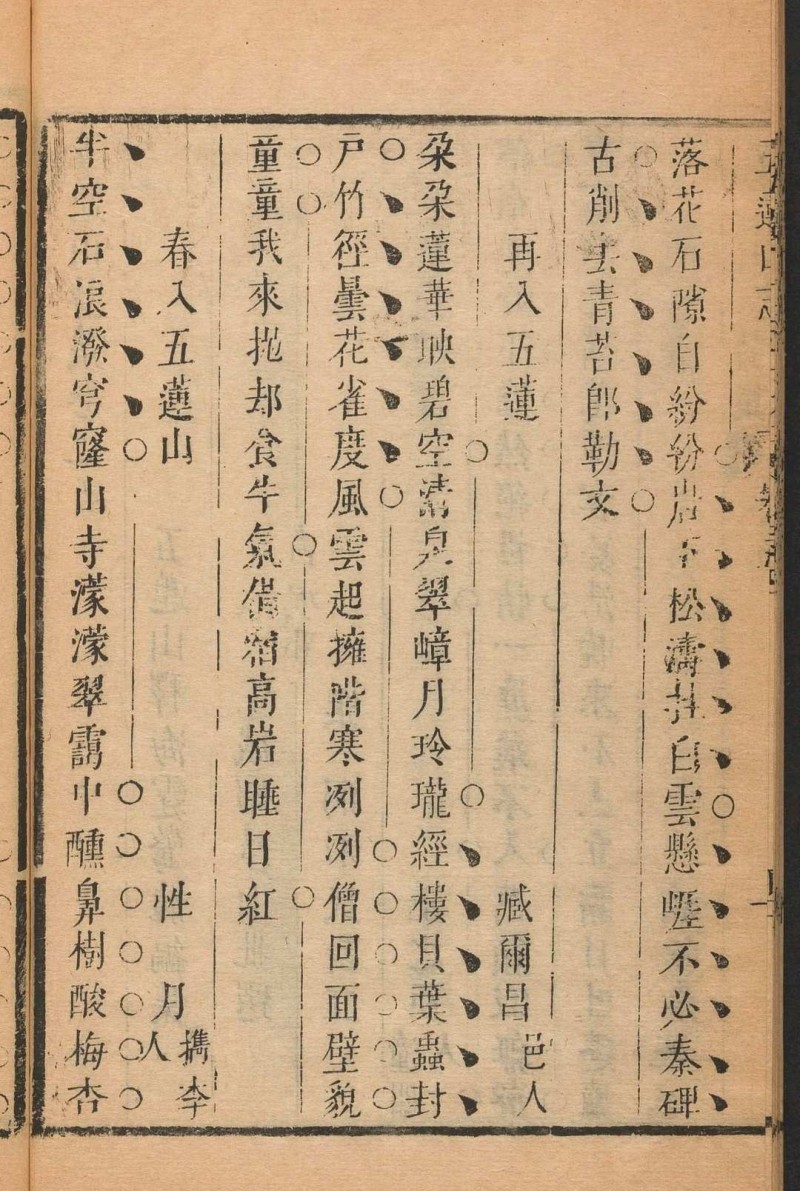 五蓮山志
落花石隙自紛紛岩下松濤共白雲懸崕不必秦碑
古削去青苔郎勒文
再入五蓮　臧爾昌邑人
朶朶蓮華映碧空清泉翠嶂月玲瓏經樓貝葉蟲封
戸竹徑曇花雀度風雲起擁階寒冽冽僧回面壁貌
童童我來抛却食牛氣借宿高岩睡日紅
春入五蓮山　性月檇李人
半空石浪潑穹窿山寺濛濛翠靄中醺鼻樹酸梅杏